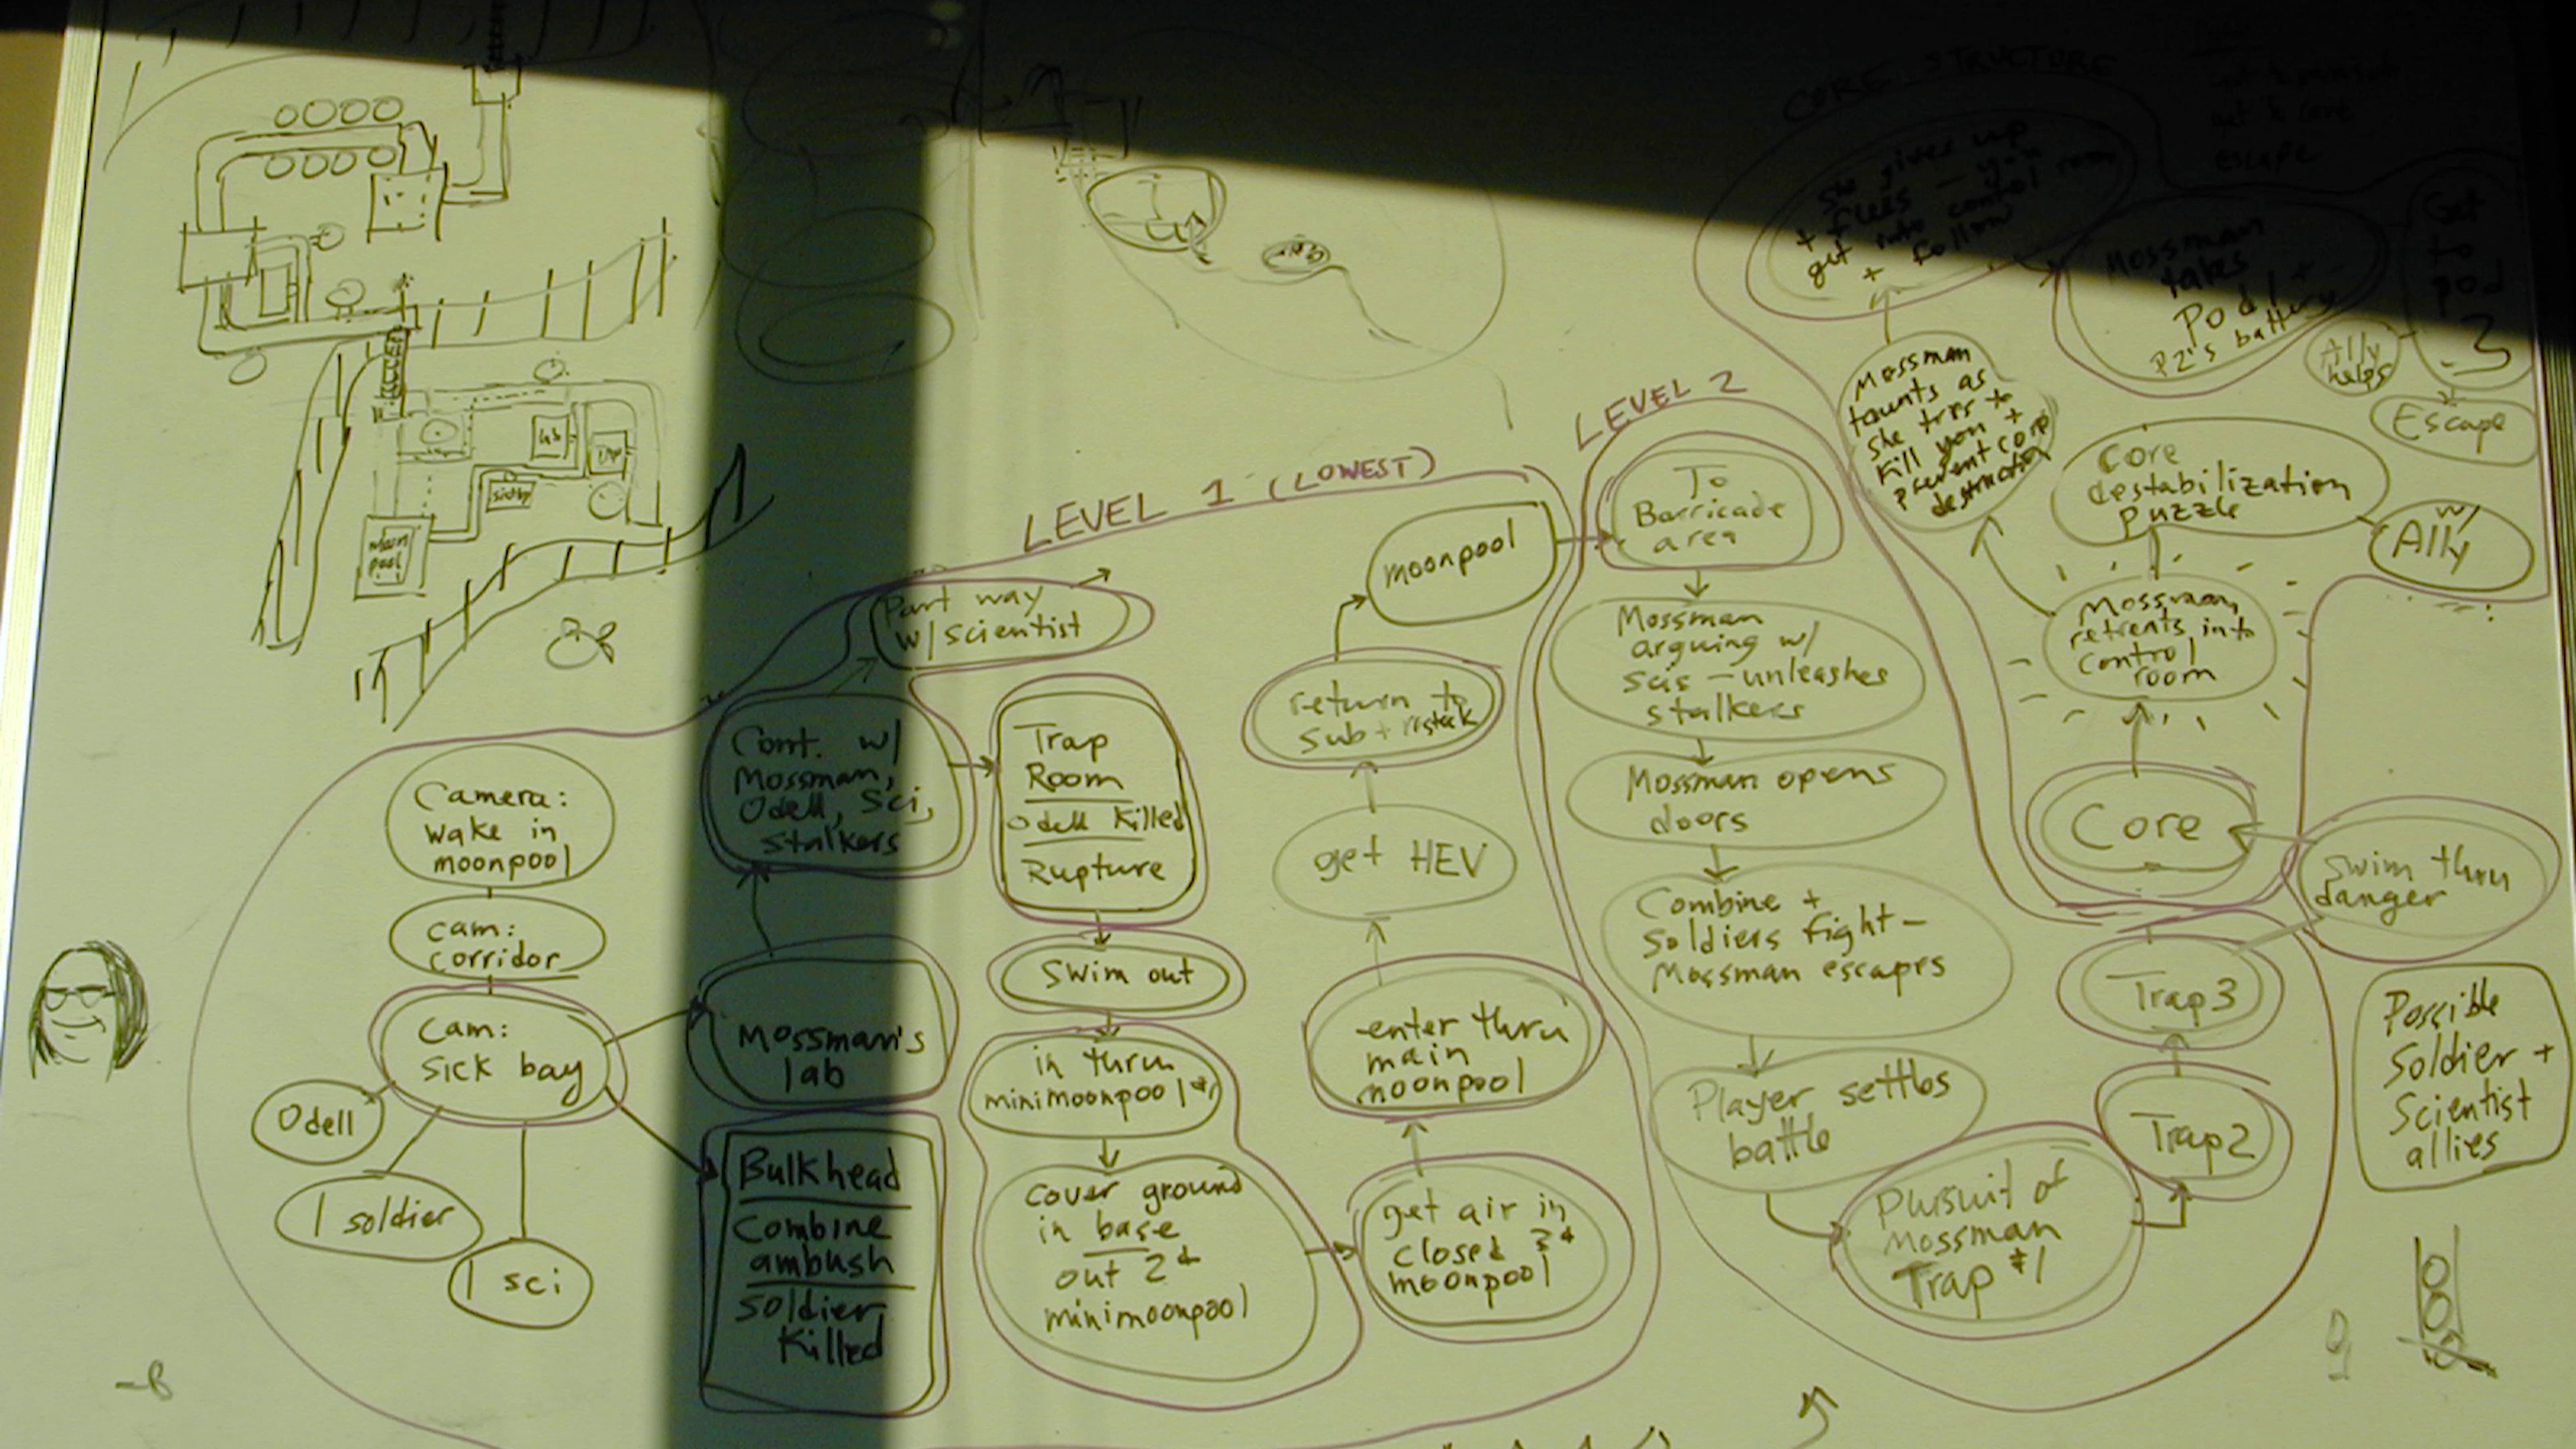 Lab
moon
pool
LEVEL 1 (LOWEST)
Camera:
wake in
moonpool
cam:
corridor
Cam:
sick bay
Odell
1 soldier
1 sci
Part way
w/ scientist
Cont. w/
Mossman,
Odell, Sci,
Stalkers
Mossman's
lab
Bulkhead
Combine
ambush
Soldier
Killed
Trap
Room
Odell Killed
Rupture
Swim out
in thru
minimoonpool #1
cover ground
in base
out 2nd
minimoonpool
get air in
closed 3rd
moonpool
enter thru
main
moonpool
get HEV
return to
sub + restock
moonpool
LEVEL 2
To
Barricade
area
Mossman
arguing w/
scis - unleashes
stalkers
Mossman opens
doors
Combine +
Soldiers fight -
Mossman escapes
Player settles
battle
Pursuit of
Mossman
Trap #1
Trap 2
Trap 3
Swim thru
danger
CORE STRUCTURE
Core
Mossman
retreats into
control
room
Core
destabilization
puzzle
w/
Ally
Mossman
taunts as
she tries to
kill you +
prevent core
destruction
She gives up
+ flees - you
get into control room
+ follow
Mossman
takes
Pod 1 +
P2's battery
get to core
escape
Get
to
pod
3
Ally
helps
Escape
Possible
Soldier +
Scientist
allies